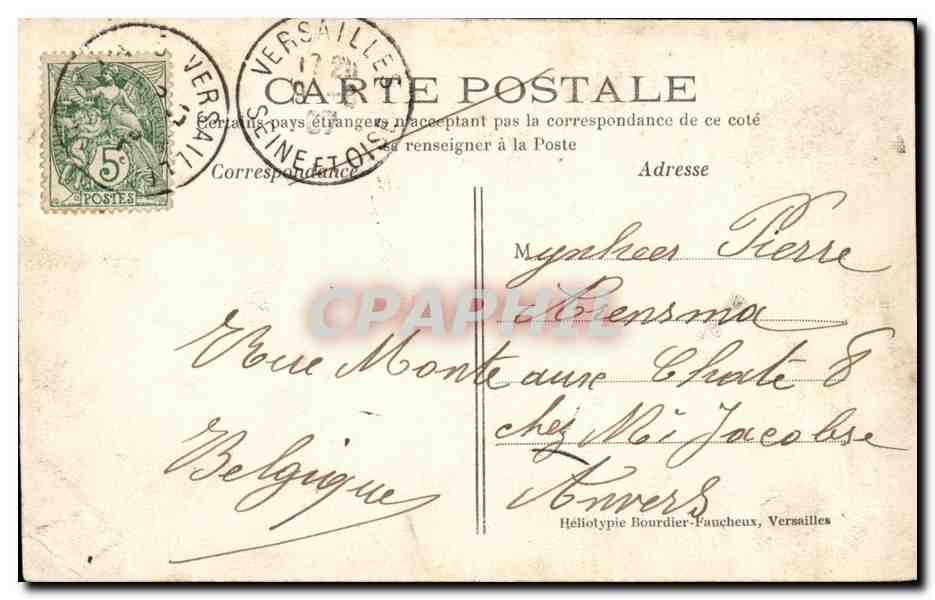 VERSAILLES
VERSAILLES
SEINE ET OISE
5c
POSTES
CARTE POSTALE
Certains pays étrangers n'acceptent pas la correspondance de ce coté
se renseigner à la Poste
Correspondance
Adresse
Mynheer Pierre
Rue Monteaux Chaté 8
chez Mr Jacobse
Anvers
Belgique
CPAPHIL
Héliotypie Bourdier-Faucheux, Versailles